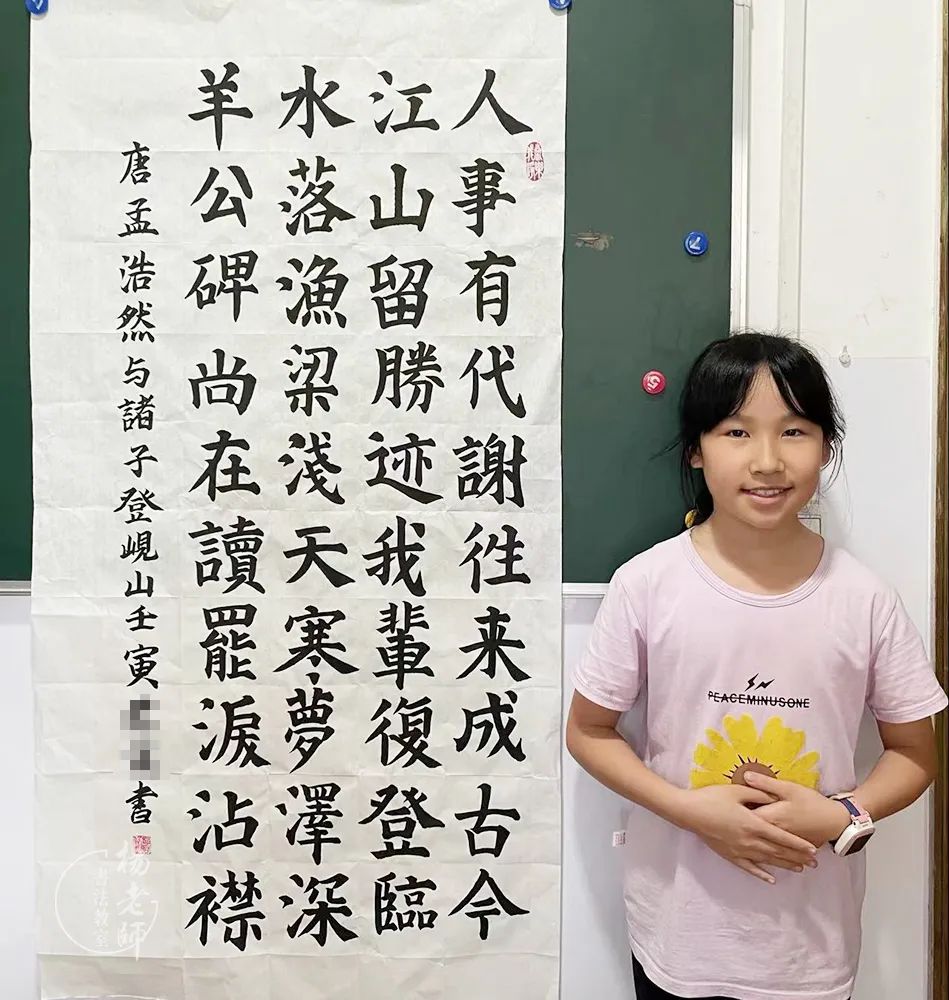 人事有代謝徃来成古今
江山留勝迹我輩復登臨
水落漁梁淺天寒夢澤深
羊公碑尚在讀罷淚沾襟
唐孟浩然与諸子登峴山壬寅
書
PEACEMINUSONE
杨老師
書法教室